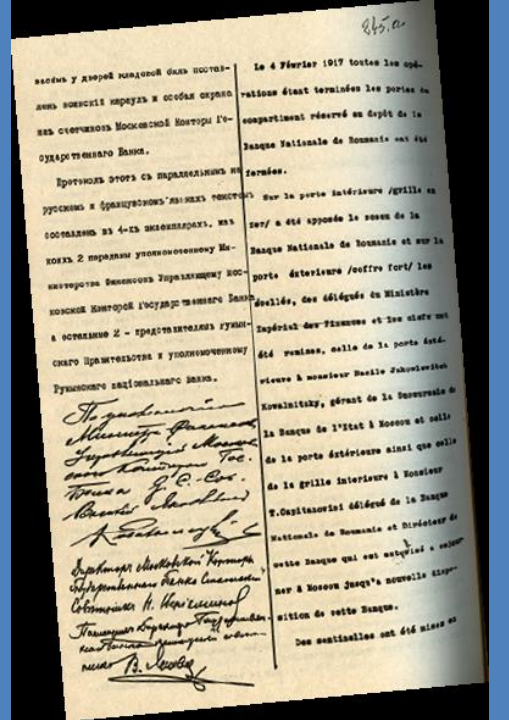 245.
вѣсомъ у дверей кладовой былъ постав-
ленъ воинскій караулъ и особая охрана
изъ счетчиковъ Московской Конторы Го-
сударственнаго Банка.
Протоколъ этотъ съ параллельнымъ на
русскомъ и французскомъ языкахъ текстомъ
составленъ въ 4-хъ экземплярахъ, изъ
коихъ 2 переданы уполномоченному Ми-
нистерства Финансовъ Управляющему Мос-
ковской Конторой Государственнаго Банка
а остальные 2 - представителямъ румын-
скаго Правительства и уполномоченному
Румынскаго національнаго Банка.
Министра Финансовъ
Управляющій Москов-
ской Конторы Гос.
Банка Д. С. Сов.
Василій Яковлевичъ
Директоръ Московской Конторы
Государственнаго Банка Статскій
Совѣтникъ Н.
В.
Le 4 Février 1917 toutes les opé-
rations étant terminées les portes du
compartiment réservé au depôt de la
Banque Nationale de Roumanie ont été
fermées.
Sur la porte intérieure /grille en
fer/ a été apposée le sceau de la
Banque Nationale de Roumanie et sur la
porte éxterieure /coffre fort/ les
scellés, des délégués du Ministère
Impérial des Finances et les clefs ont
été remises, celle de la porte éxté-
rieure à monsieur Basile Jakowlewitch
Kowalnitzky, gérant de la Succursale de
la Banque de l'Etat à Moscou et celle
de la porte éxtérieure ainsi que celle
de la grille interieure à Monsieur
T.Capitanovici délégué de la Banque
Nationale de Roumanie et Directeur de
cette Banque qui est à sejour
ner à Moscou jusqu'à nouvelle dispo-
sition de cette Banque.
Des sentinelles ont été mises en